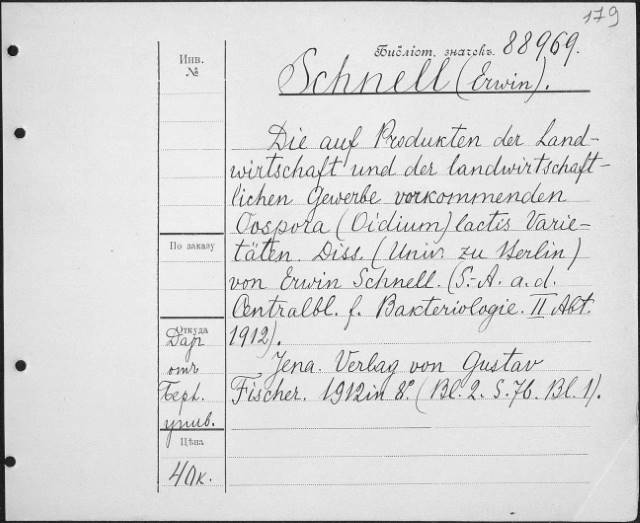 179
Инв. №
Библіот. значокъ 88969.
Schnell (Erwin).
Die auf Produkten der Land-
wirtschaft und der landwirtschaft-
lichen Gewerbe vorkommenden
Oospora (Oidium) lactis Varie-
täten. Diss. (Univ. zu Berlin)
von Erwin Schnell. (S.-A. a. d.
Centralbl. f. Bakteriologie. II Abt.
1912).
Jena. Verlag von Gustav
Fischer. 1912 in 8°. (Bl. 2. S. 76. Bl. 1).
По заказу
Откуда
Дар
отъ
Берл.
унив.
Цѣна
40к.